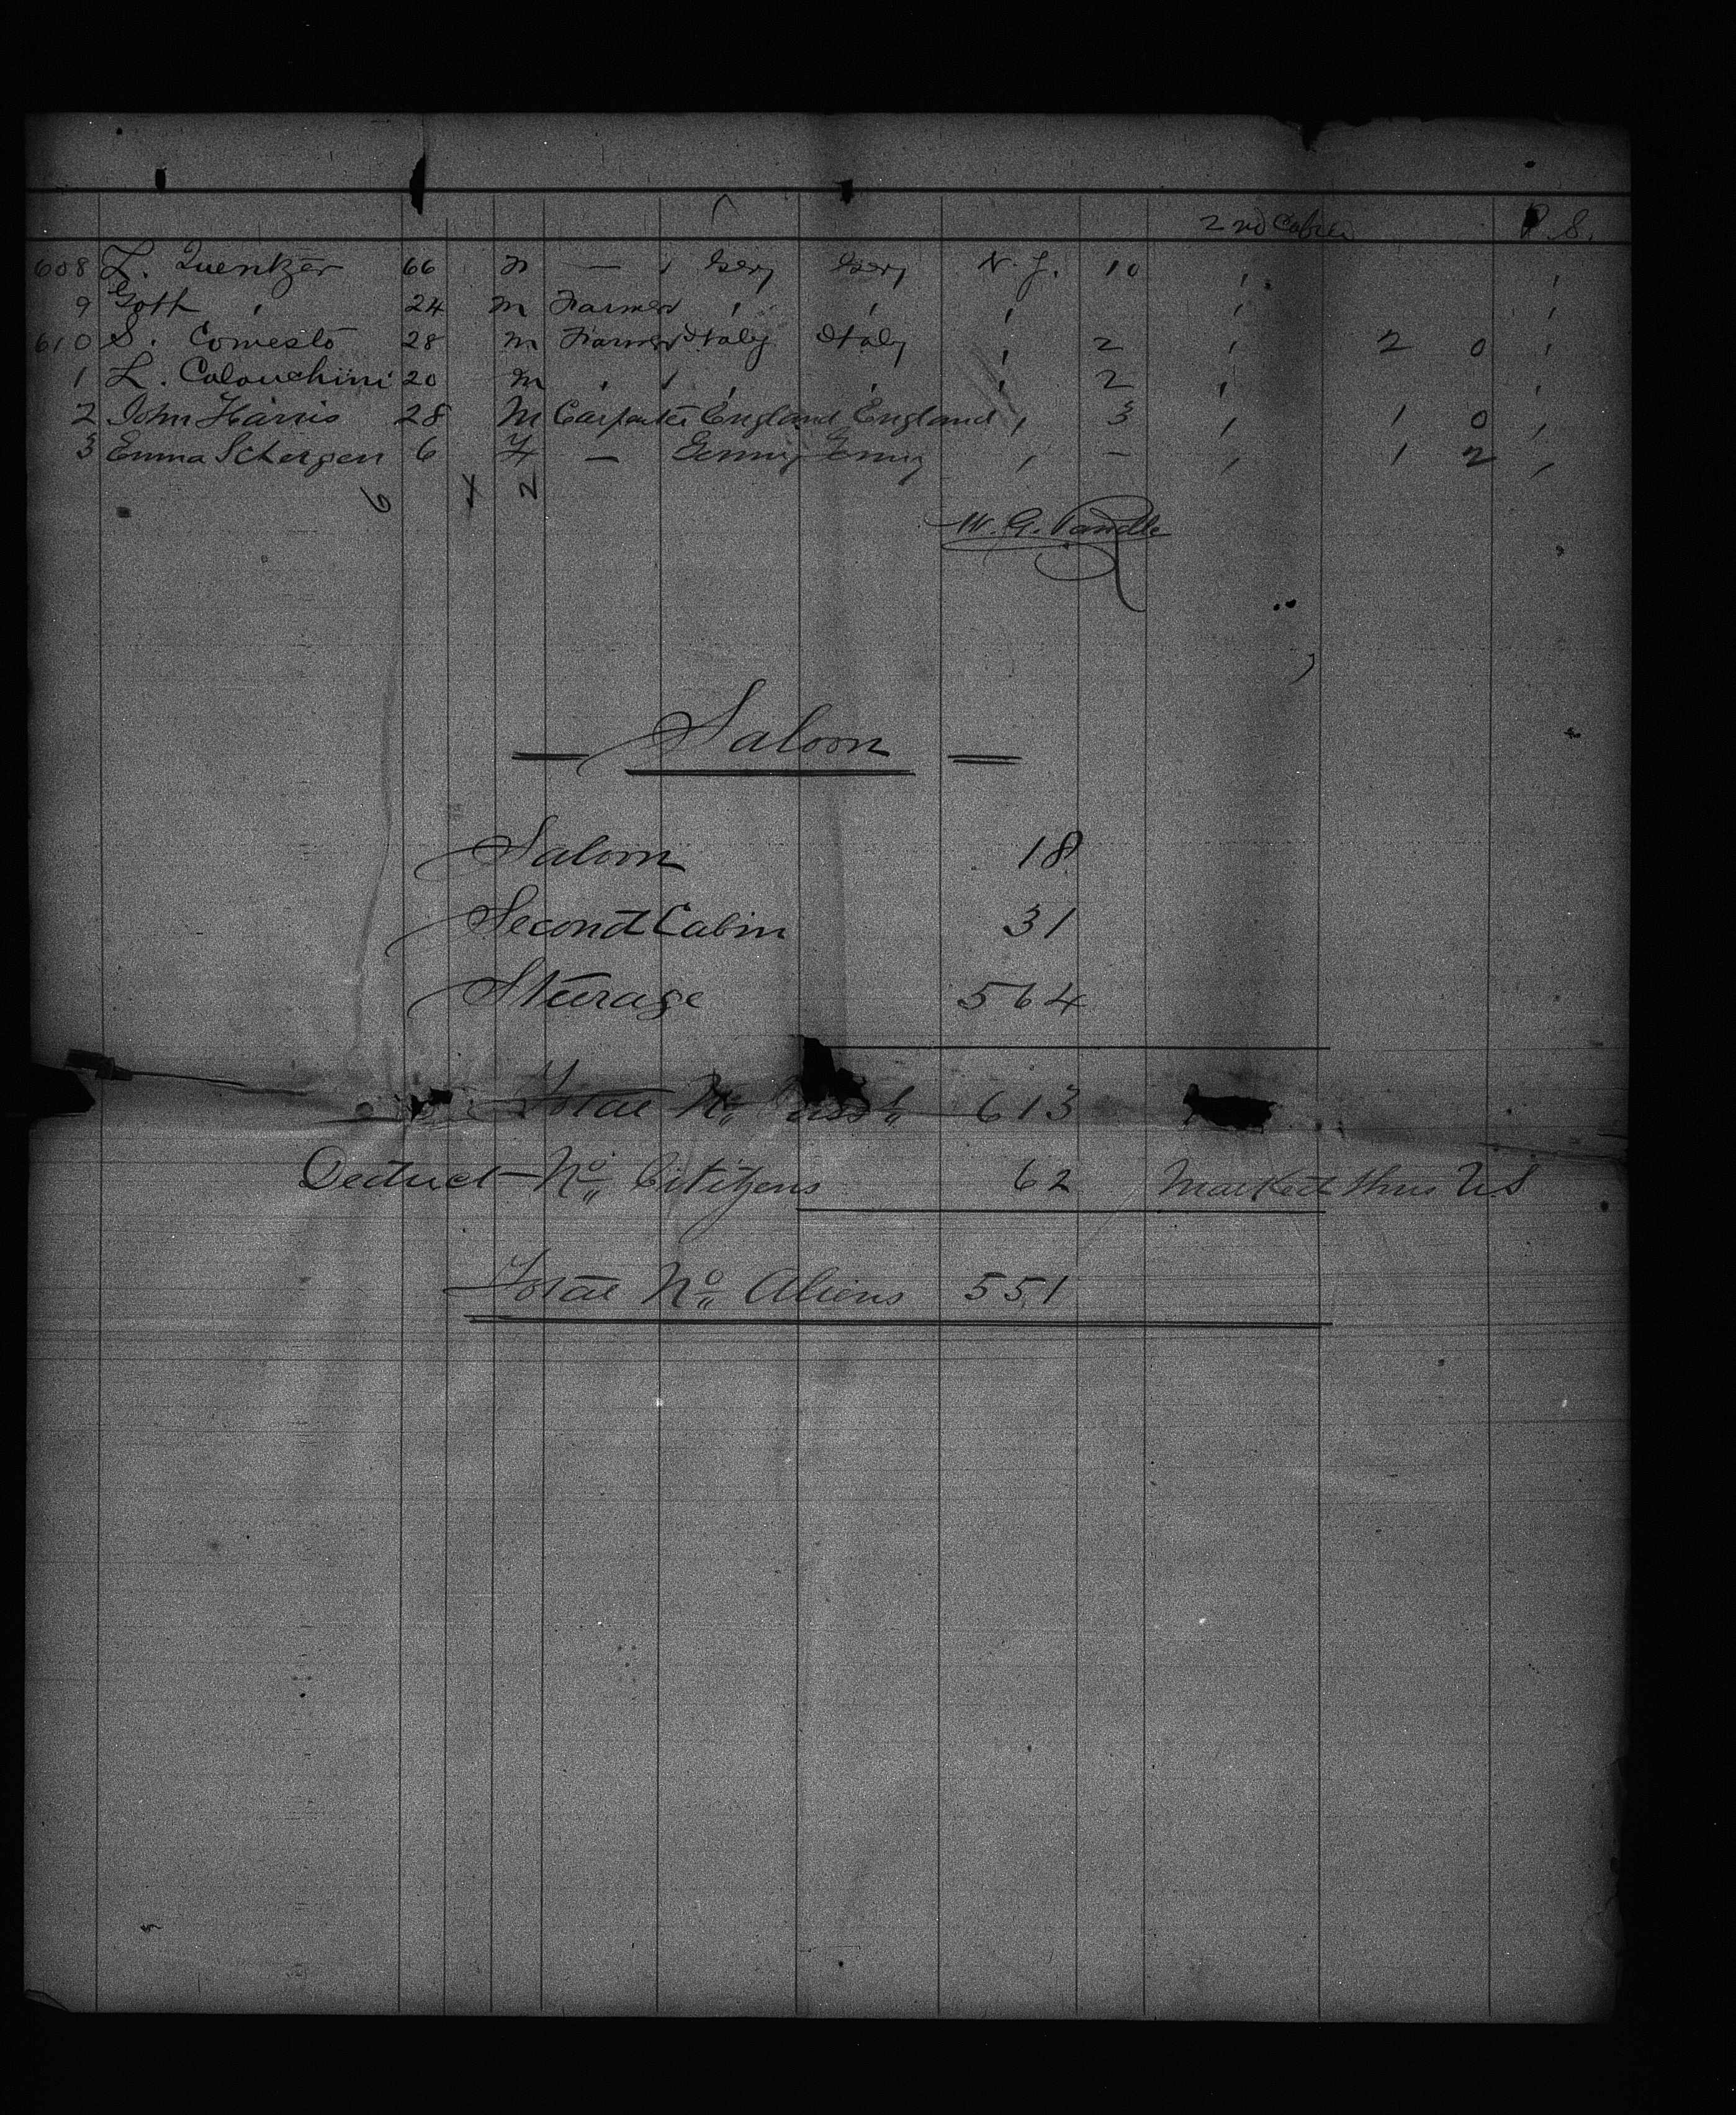 2nd Cabin P.S.
608 L. Quentzer 66 m — Gery Gery N.J. 10 , ,
9 Goth , 24 m Farmer , , , , ,
610 S. Comesto 28 m Farmer Italy Italy , 2 , 2 0 ,
1 L. Calouchini 20 m , , , , 2 , ,
2 John Harris 28 M Carpenter England England , 3 , 1 0 ,
3 Emma Schergen 6 F — Germy Germy , — , 1 2 ,
6 2
W. G. Randle
— Saloon —
Saloon 18
Second Cabin 31
Steerage 564
Total No. 613
Deduct — No. Citizens 62 Marked thus US
Total No. Aliens 551